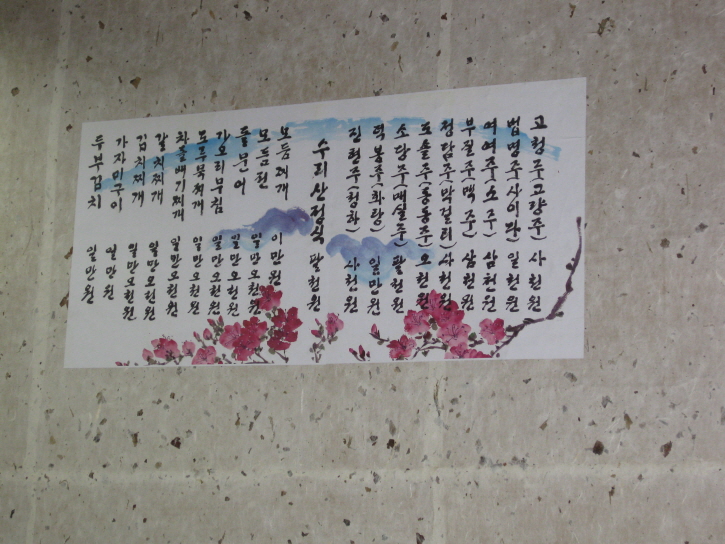 고형주(고량주) 사천원
법명주(사이다) 일천원
여여주(소주) 삼천원
부월주(맥주) 삼천원
정담주(막걸리) 사천원
도솔주(동동주) 오천원
소당주(매실주) 팔천원
력봉주(화랑) 일만원
진현주(청하) 사천원
수리산정식 팔천원
모듬찌개 이만원
모듬전 일만오천원
돌문어 일만오천원
가오리무침 일만오천원
도루묵찌개 일만오천원
차돌배기찌개 일만오천원
갈치찌개 일만오천원
김치찌개 일만오천원
가자미구이 일만원
두부김치 일만원